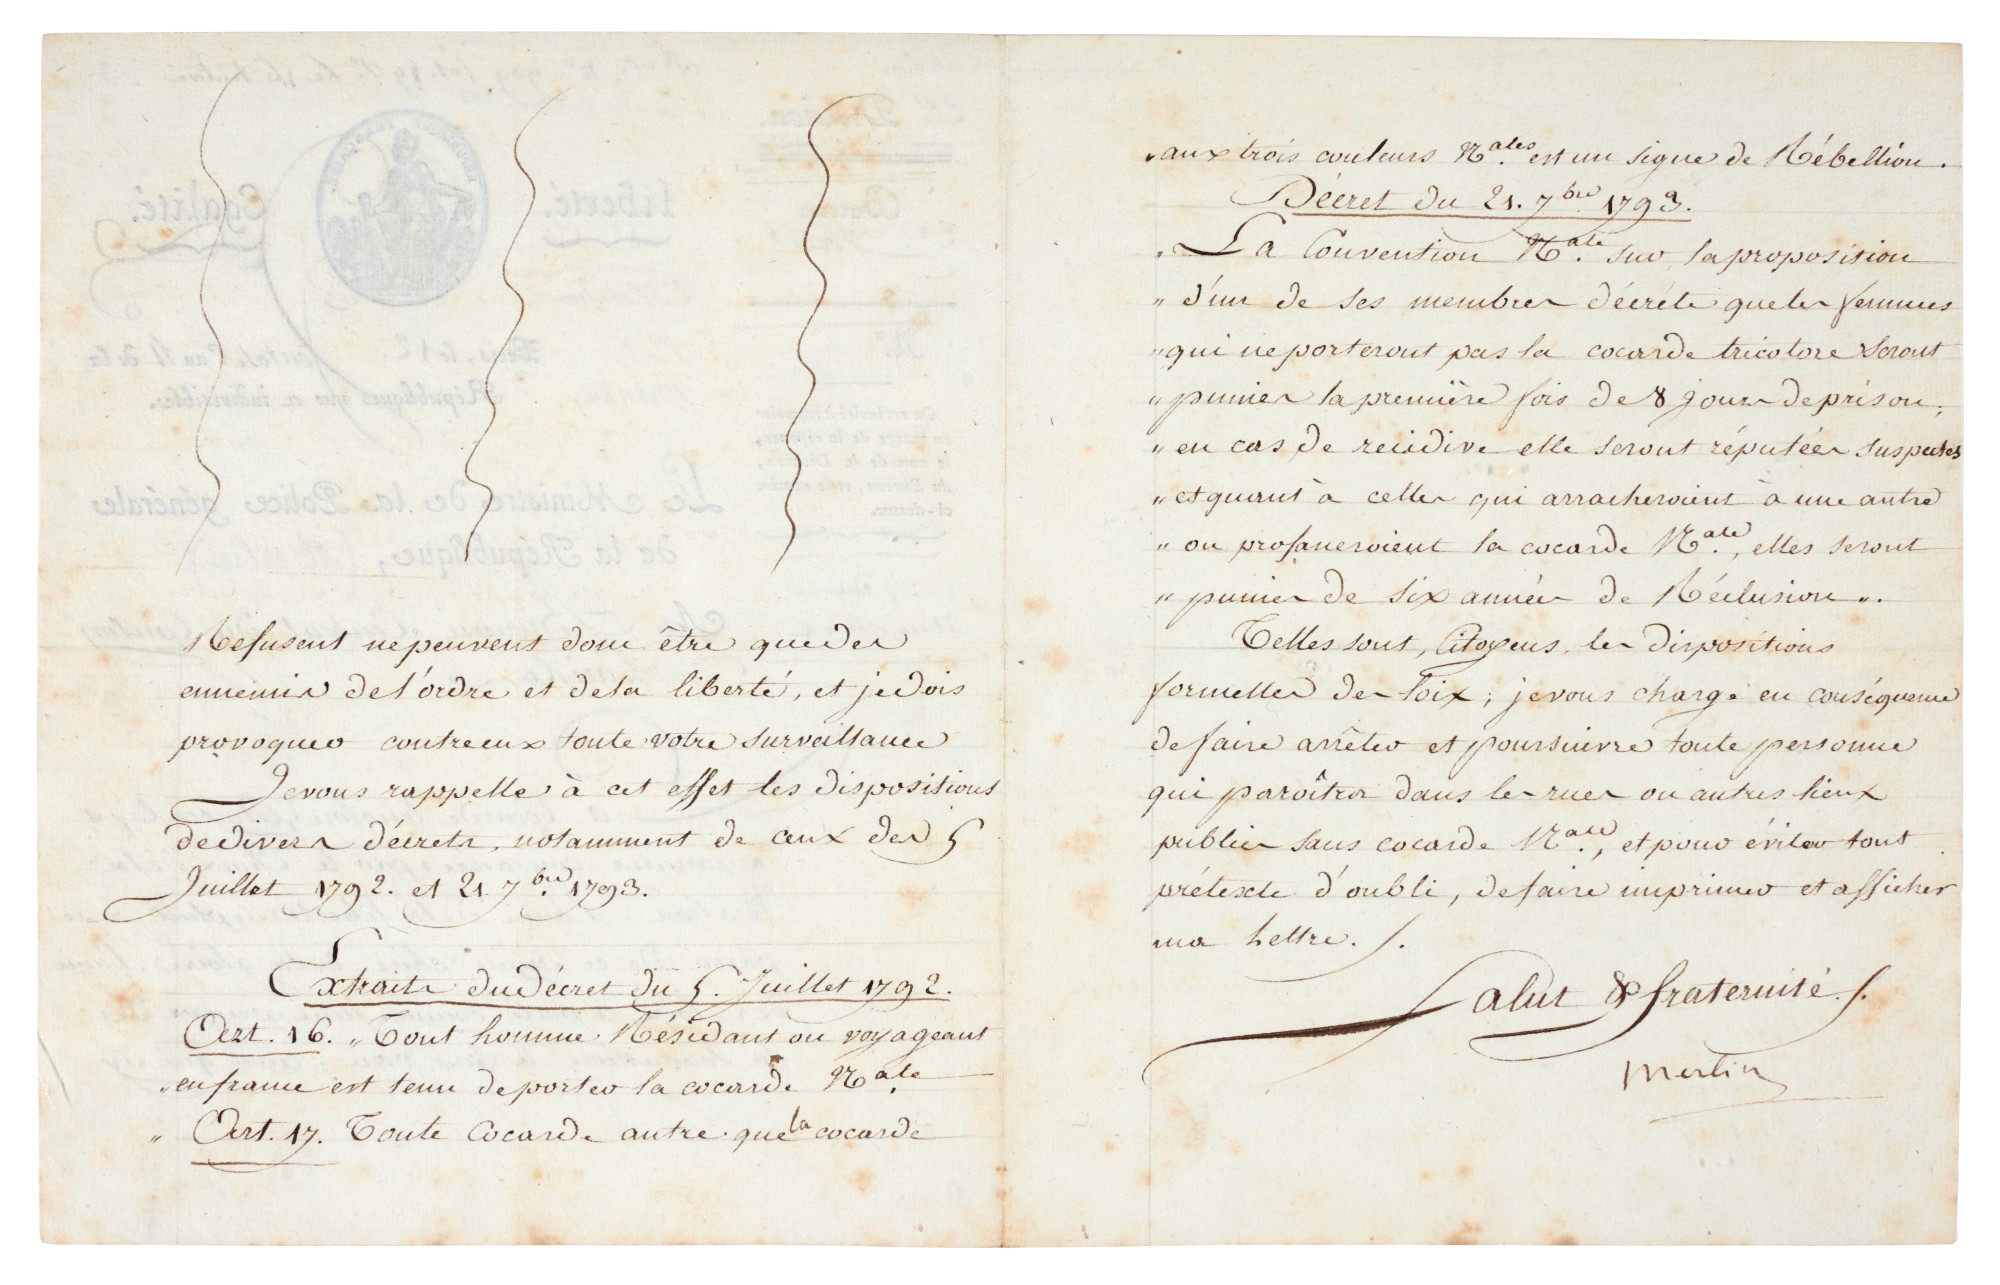 Refusent ne peuvent donc être que des
ennemis de l'ordre et de la liberté, et je dois
provoquer contre eux toute votre surveillance
Je vous rappelle à cet effet les dispositions
de divers décrets, notamment de ceux des 5
Juillet 1792. et 21. 7.bre 1793.
Extraits du décret du 5. Juillet 1792.
Art. 16. „ Tout homme Résidant ou voyageant
„ en france est tenu de porter la cocarde N.ale
„ Art. 17. Toute Cocarde autre que la cocarde
„ aux trois couleurs N.ales est un signe de Rébellion.
Décret du 21. 7.bre 1793.
„ La Convention N.ale sur la proposition
„ d'un de ses membres décrète que les femmes
„ qui ne porteront pas la cocarde tricolore seront
„ punies la première fois de 8 jours de prison,
„ en cas de recidive elle seront réputées suspectes
„ et quant à celles qui arracheroient à une autre
„ ou profaneroient la cocarde N.ale, elles seront
„ punies de six années de Réclusion „.
Telles sont, Citoyens, les dispositions
formelles des loix; je vous charge en conséquence
de faire arrêter et poursuivre toute personne
qui paroîtra dans les rues ou autres lieux
publics sans cocarde N.ale, et pour éviter tout
prétexte d'oubli, de faire imprimer et afficher
ma lettre. /.
Salut & fraternité. /.
Merlin
Division.
Liberté.
Egalité.
Paris, le
l'an 6 de la
République une et indivisible.
Le Ministre de la Police générale
de la République,